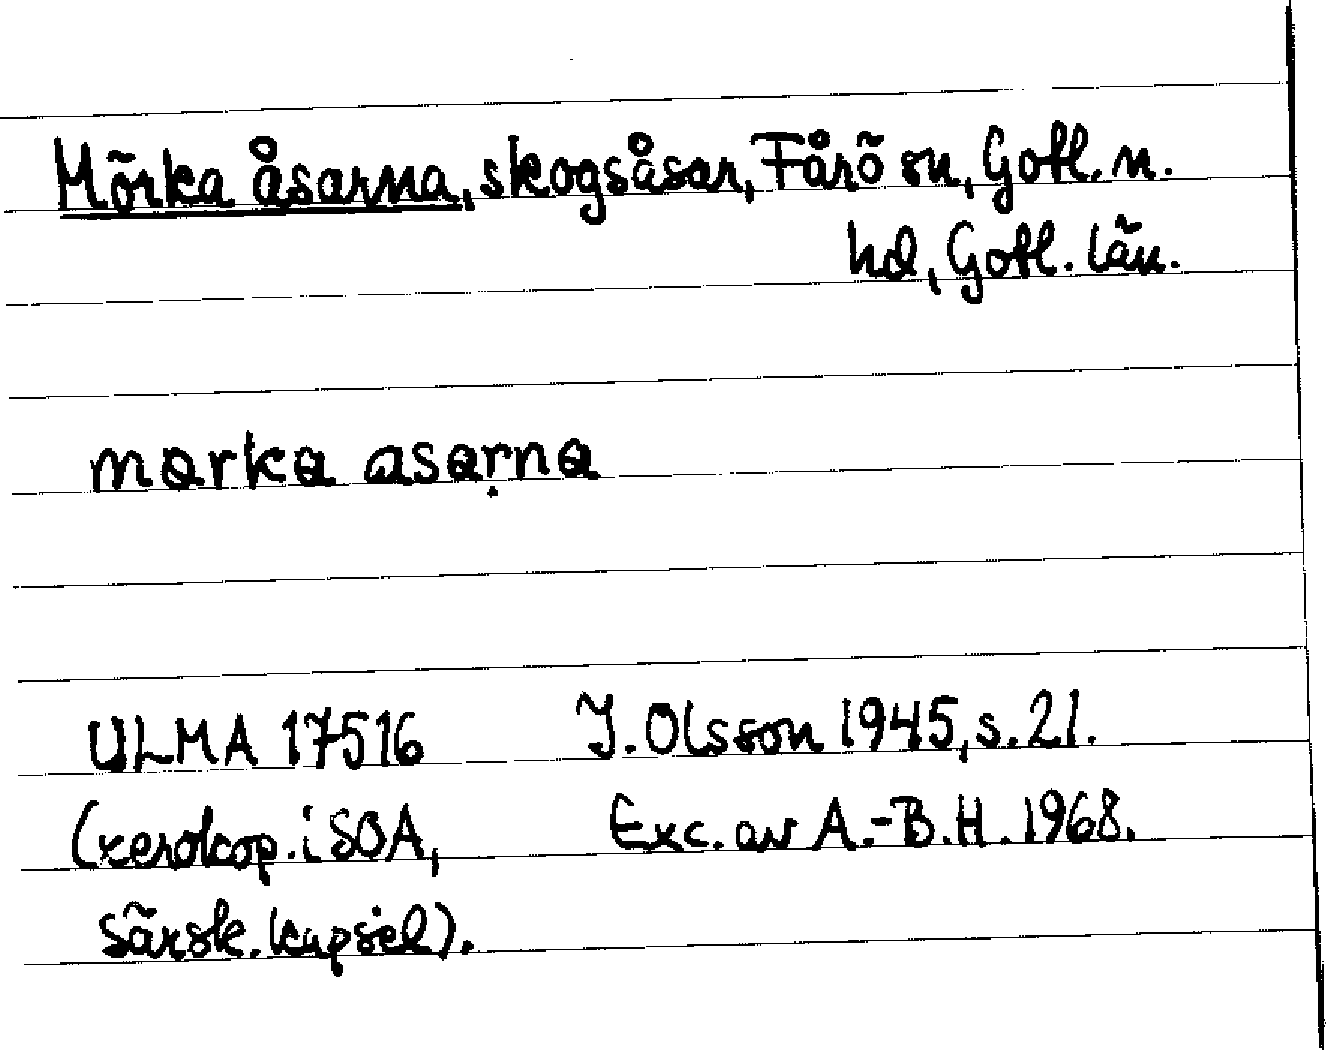 Mörka åsarna, skogsåsar, Fårö sn, Gotl. n.
hd, Gotl. län.
marka asarna
ULMA 17516 J. Olsson 1945, s. 21.
(xerokop. i SOA, Exc. av A.-B.H. 1968.
särsk. kapsel).